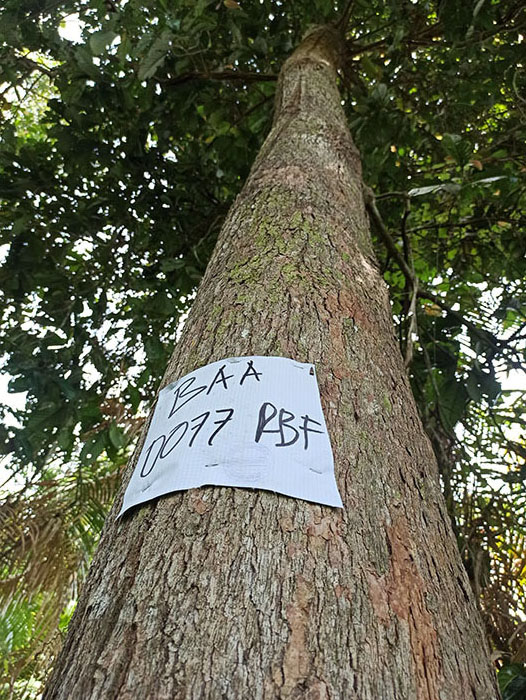 BAA
0077 RBF